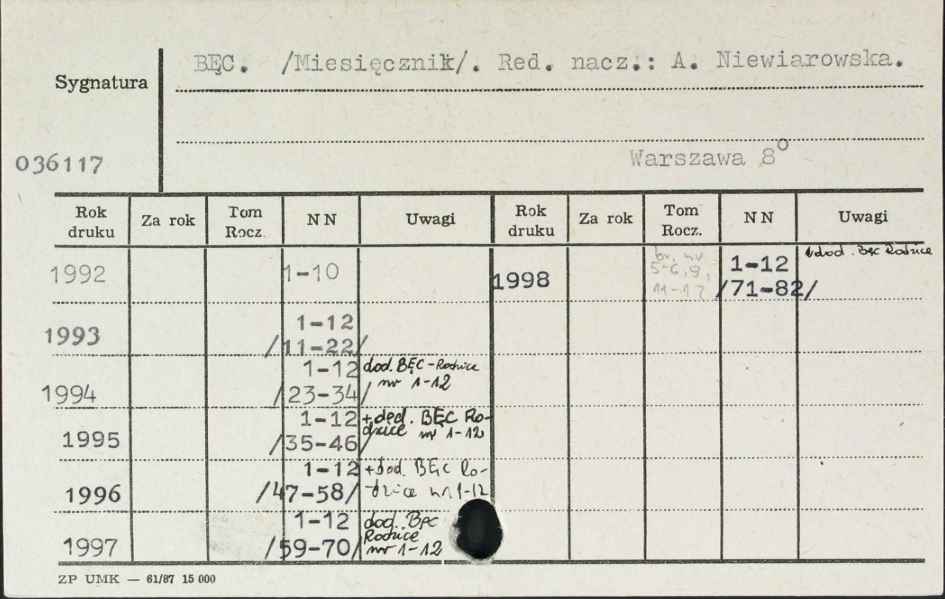 BĘC. /Miesięcznik/. Red. nacz.: A. Niewiarowska.
Sygnatura
036117
Warszawa 8°
Rok druku Za rok Tom Rocz. NN Uwagi Rok druku Za rok Tom Rocz. NN Uwagi
1992 1-10
1993 1-12
/11-22/
1994 1-12 dod. BĘC-Rodzice
/23-34/ nr 1-12
1995 1-12 +dod. BĘC Ro-
/35-46/ dzice nr 1-12
1996 1-12 +dod. BĘC Ro-
/47-58/ dzice nr 1-12
1997 1-12 dod. BĘC
/59-70/ Rodzice
nr 1-12
1998 1-12 +dod. Bęc Rodzice
5-6, 9, /71-82/
ZP UMK — 61/87 15 000